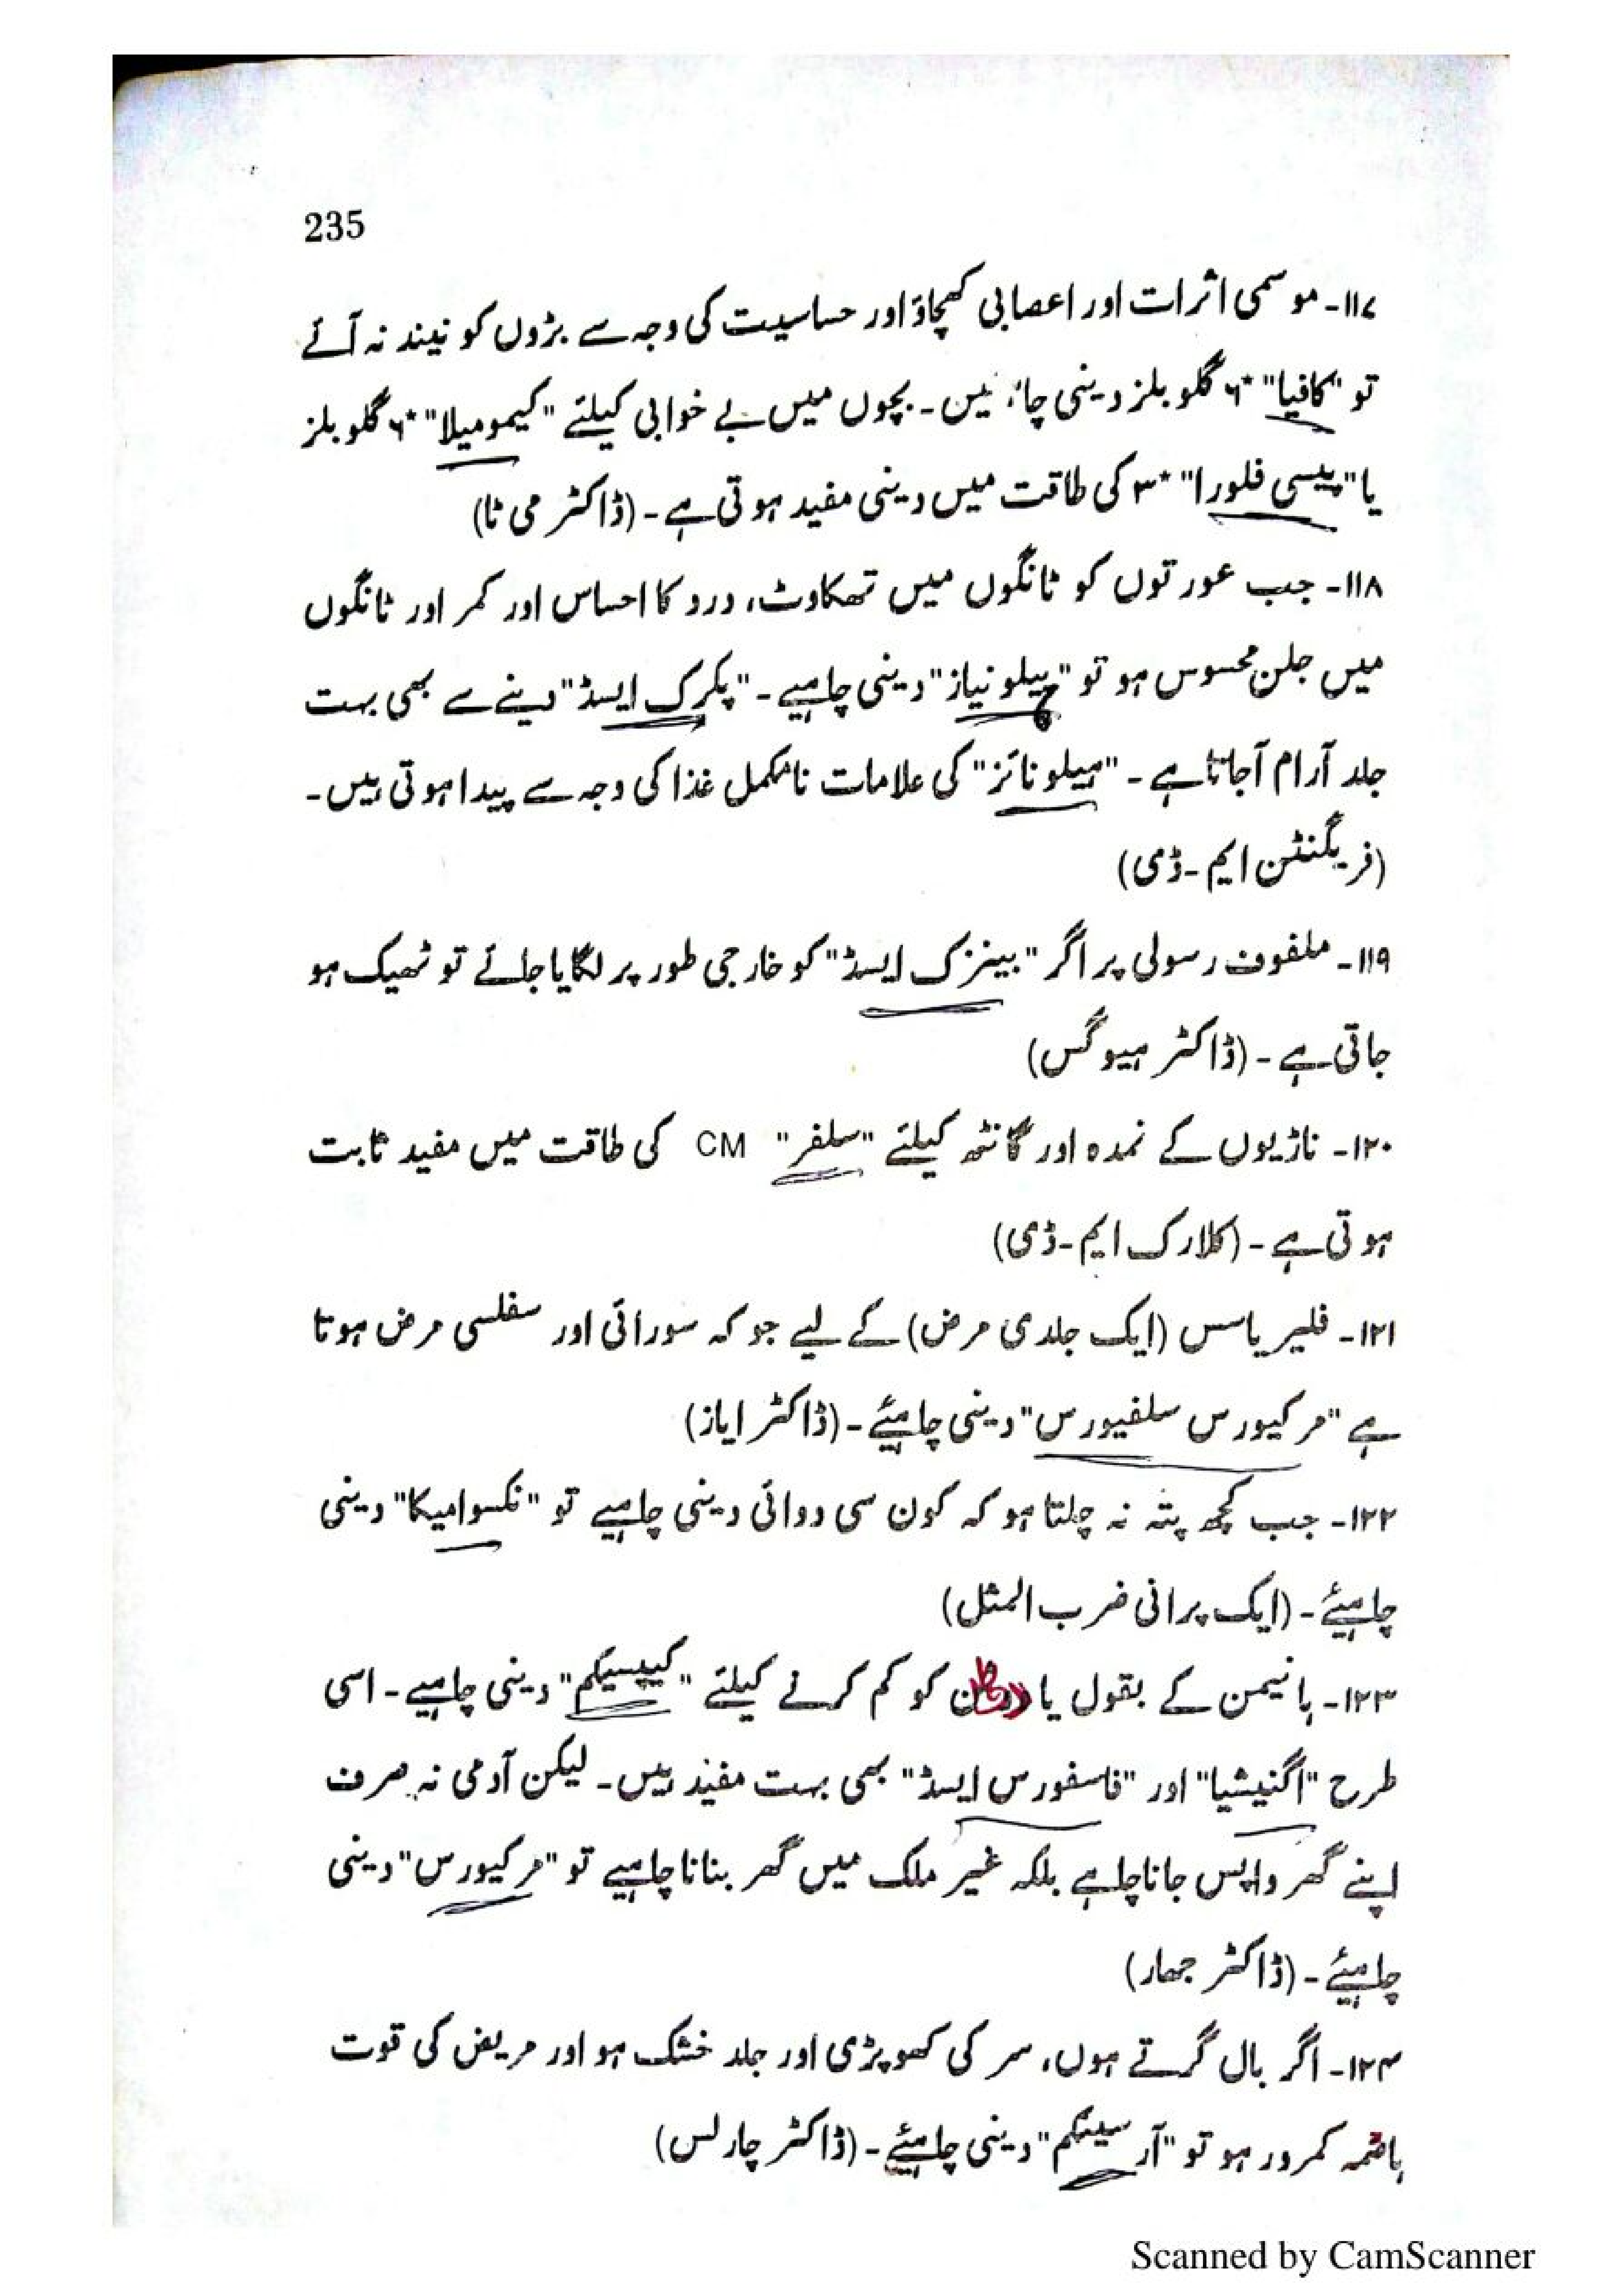 235
۱۱۷- موسمی اثرات اور اعصابی کھچاؤ اور حساسیت کی وجہ سے بڑوں کو نیند نہ آئے
تو "کافیا" *۶ گلوبلز دینی چاہئیں۔ بچوں میں بے خوابی کیلئے "کیمومیلا" *۶ گلوبلز
یا "پیسی فلورا" *۳ کی طاقت میں دینی مفید ہوتی ہے۔ (ڈاکٹر می ٹا)
۱۱۸- جب عورتوں کو ٹانگوں میں تھکاوٹ، درد کا احساس اور کمر اور ٹانگوں
میں جلن محسوس ہو تو "ہیلونیاز" دینی چاہیے۔ "پکرک ایسڈ" دینے سے بھی بہت
جلد آرام آجاتا ہے۔ "ہیلونائز" کی علامات نامکمل غذا کی وجہ سے پیدا ہوتی ہیں۔
(فریگنٹن ایم۔ڈی)
۱۱۹- ملفوف رسولی پر اگر "بینزک ایسڈ" کو خارجی طور پر لگایا جائے تو ٹھیک ہو
جاتی ہے۔ (ڈاکٹر ہیوگس)
۱۲۰- ناڑیوں کے نمدہ اور گانٹھ کیلئے "سلفر" CM کی طاقت میں مفید ثابت
ہوتی ہے۔ (کلارک ایم۔ڈی)
۱۲۱- فلیریاسس (ایک جلدی مرض) کے لیے جو کہ سورائی اور سفلسی مرض ہوتا
ہے "مرکیورس سلفیورس" دینی چاہیئے۔ (ڈاکٹر ایاز)
۱۲۲- جب کچھ پتہ نہ چلتا ہو کہ کون سی دوائی دینی چاہیے تو "نکسوامیکا" دینی
چاہیئے۔ (ایک پرانی ضرب المثل)
۱۲۳- ہانیمن کے بقول یاد وطن کو کم کرنے کیلئے "کیپسیکم" دینی چاہیے۔ اسی
طرح "اگنیشیا" اور "فاسفورس ایسڈ" بھی بہت مفید ہیں۔ لیکن آدمی نہ صرف
اپنے گھر واپس جانا چاہے بلکہ غیر ملک میں گھر بنانا چاہیے تو "مرکیورس" دینی
چاہیئے۔ (ڈاکٹر جھار)
۱۲۴- اگر بال گرتے ہوں، سر کی کھوپڑی اور جلد خشک ہو اور مریض کی قوت
ہاضمہ کمرور ہو تو "آرسینکم" دینی چاہیئے۔ (ڈاکٹر چارلس)
Scanned by CamScanner